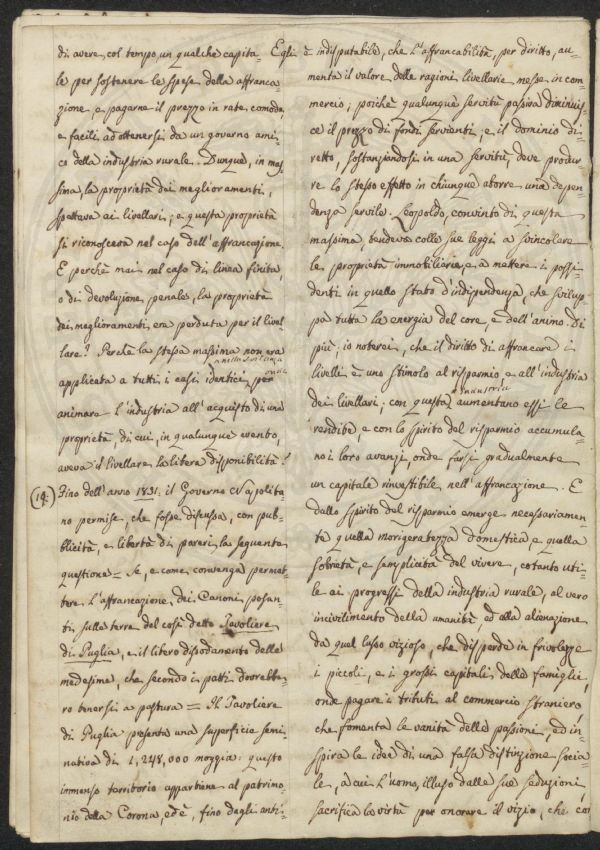 di avere, col tempo, un qualche capita-
le per sostenere le spese della affranca
zione, e pagarne il prezzo in rate comode,
e facili ad ottenersi da un governo ami-
co della industria rurale. Dunque, in mas
sima, la proprietà dei meglioramenti,
spettava ai livellari; e questa proprietà
si riconosceva nel caso dell'affrancazione.
E perchè mai nel caso di linea finita,
o di devoluzione penale, la proprietà
dei meglioramenti, era perduta per il livel-
lare? Perchè la stessa massima non era
applicata a tutti i casi identici per
animare l'industria all'acquisto di una
proprietà, di cui, in qualunque evento,
aveva il livellare la libera disponibilità?
(14) Fino dell'anno 1831. il Governo Napolita
no permise, che fosse discussa, con pub-
blicità, e libertà di pareri, la seguente
questione = Se, e come, convenga permet-
tere l'affrancazione dei Canoni posan-
ti sulle terre del così detto Tavoliere
di Puglia, e il libero dissodamento delle
medesime, che secondo i patti dovrebbe-
ro tenersi a pastura = Il Tavoliere
di Puglia presenta una superficie semi
nativa di 1,248,000 moggia: questo
immenso territorio appartiene al patrimo-
nio della Corona, ed è, fino dagli anti-
Egli è indisputabile, che l'affrancabilità, per diritto, au-
menta il valore delle ragioni livellarie messe in com-
mercio; poichè qualunque servitù passiva diminuis-
ce il prezzo di fondi servienti, e il dominio di-
retto, sostanziandosi in una servitù, deve produr
re lo stesso effetto in chiunque aborre una depen-
denza servile. Leopoldo, convinto di questa
massima, tendeva colle sue leggi a svincolare
le proprietà immobiliarie, e a mettere i possi-
denti in quello stato d'indipendenza, che svilup-
pa tutta la energia del core, e dell'animo. Di
più, io noterei, che il diritto di affrancare i
livelli è uno stimolo al risparmio e all'industria
dei livellari; con questa aumentano essi le
rendite, e con lo spirito del risparmio accumula-
no i loro avanzi, onde farsi gradualmente
un capitale rinvestibile nell'affrancazione. E
dallo spirito del risparmio emerge necessariamen
te quella morigeratezza domestica, e quella
sobrietà, e semplicità del vivere, cotanto uti-
le ai progressi della industria rurale, al vero
incivilimento della umanità ed alla alienazione
da quel lusso vizioso, che disperde in frivolezze
i piccoli, e i grossi capitali delle famiglie,
onde pagare i tributi al commercio straniero,
che fomenta le vanità delle passioni, ed in-
spira le idee di una falsa distinzione socia-
le, a cui l'uomo, illuso dalle sue seduzioni,
sacrifica la virtù per onorare il vizio, che co